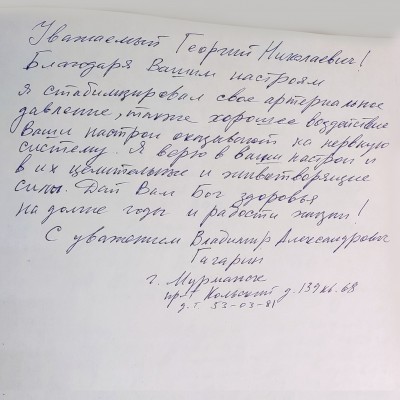 Уважаемый Георгий Николаевич!
Благодаря Вашим настроям
я стабилизировал свое артериальное
давление, также хорошее воздействие
Ваши настрои оказывают на нервную
систему. Я верю в Ваши настрои и
в их целительные и животворящие
силы. Дай Вам Бог здоровья
на долгие годы и радости жизни!
С уважением Владимир Александрович
Гагарин
г. Мурманск
пр-т Кольский д. 139 кв. 68
д.т 53-03-81